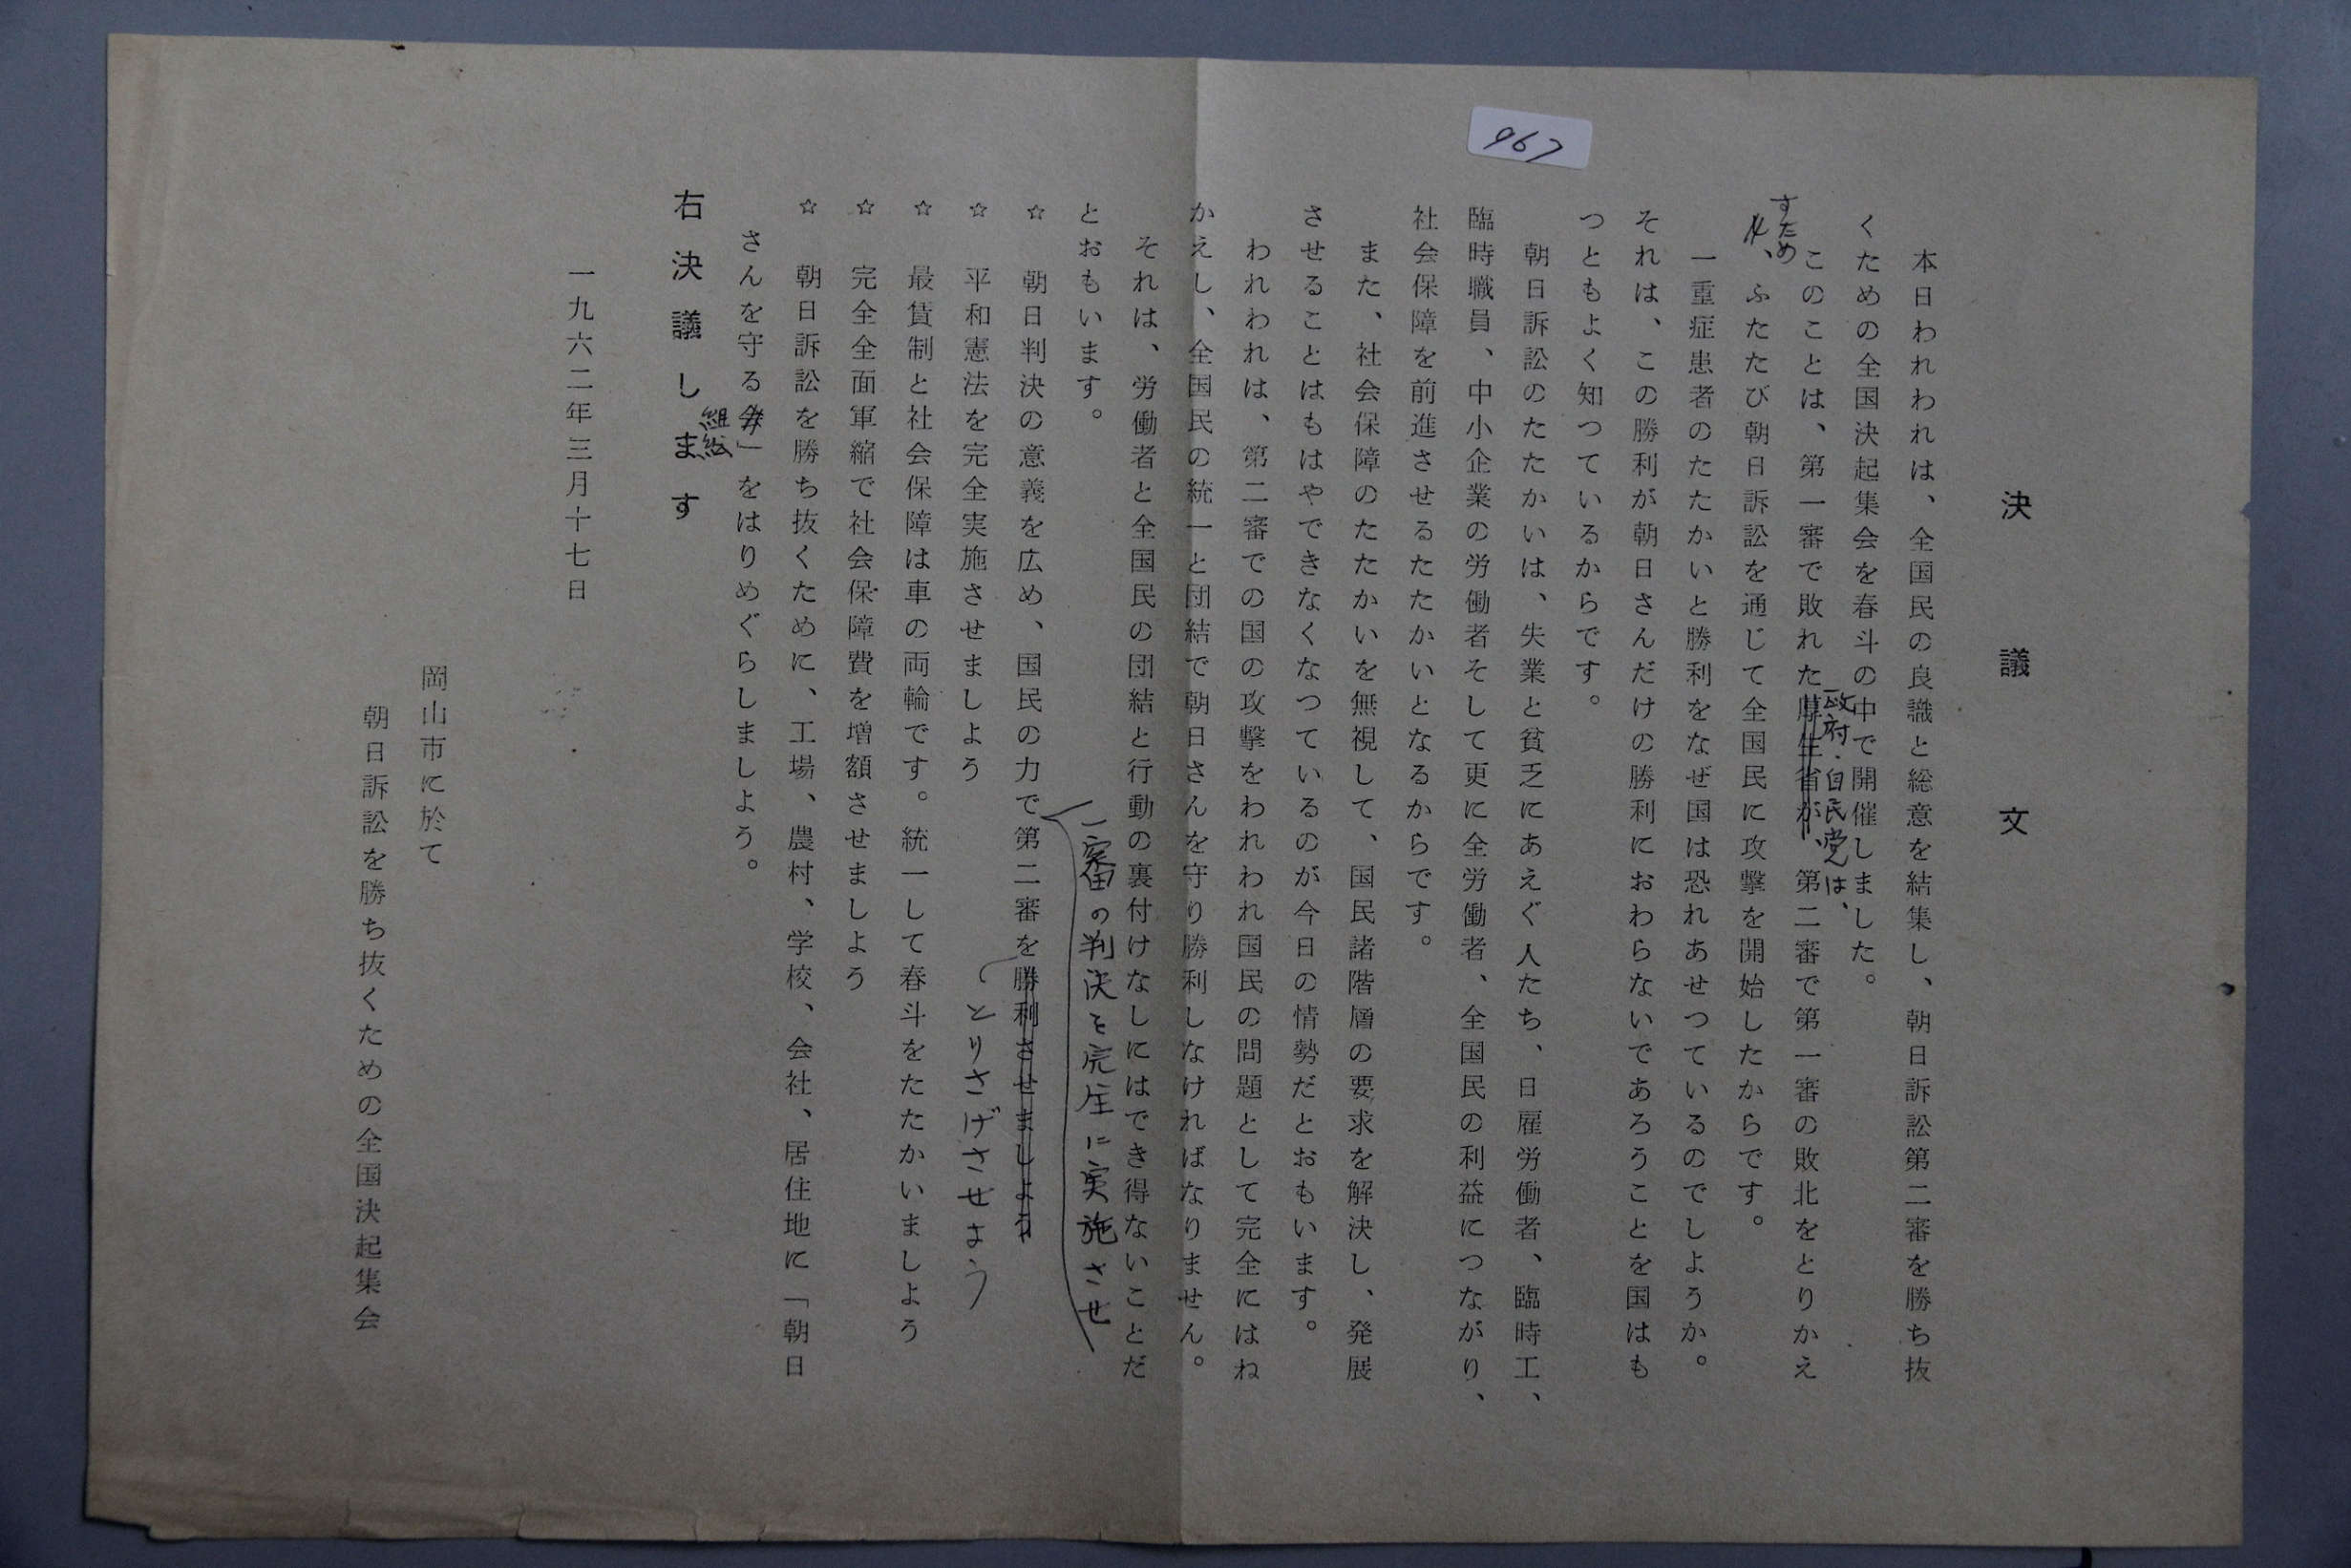 967
決議文
本日われわれは、全国民の良識と総意を結集し、朝日訴訟第二審を勝ち抜
くための全国決起集会を春斗の中で開催しました。
政府・自民党は、
このことは、第一審で敗れた厚生省が第二審で第一審の敗北をとりかえ
すため
、ふたたび朝日訴訟を通じて全国民に攻撃を開始したからです。
一重症患者のたたかいと勝利をなぜ国は恐れあせつているのでしようか。
それは、この勝利が朝日さんだけの勝利におわらないであろうことを国はも
つともよく知つているからです。
朝日訴訟のたたかいは、失業と貧乏にあえぐ人たち、日雇労働者、臨時工、
臨時職員、中小企業の労働者そして更に全労働者、全国民の利益につながり、
社会保障を前進させるたたかいとなるからです。
また、社会保障のたたかいを無視して、国民諸階層の要求を解決し、発展
させることはもはやできなくなつているのが今日の情勢だとおもいます。
われわれは、第二審での国の攻撃をわれわれ国民の問題として完全にはね
かえし、全国民の統一と団結で朝日さんを守り勝利しなければなりません。
それは、労働者と全国民の団結と行動の裏付けなしにはでき得ないことだ
とおもいます。
一審の判決を完全に実施させ
☆ 朝日判決の意義を広め、国民の力で第二審を勝利させましよう
とりさげさせよう
☆ 平和憲法を完全実施させましよう
☆ 最賃制と社会保障は車の両輪です。統一して春斗をたたかいましよう
☆ 完全全面軍縮で社会保障費を増額させましよう
☆ 朝日訴訟を勝ち抜くために、工場、農村、学校、会社、居住地に「朝日
さんを守る会」をはりめぐらしましよう。
組織
右決議します
一九六二年三月十七日
岡山市に於て
朝日訴訟を勝ち抜くための全国決起集会